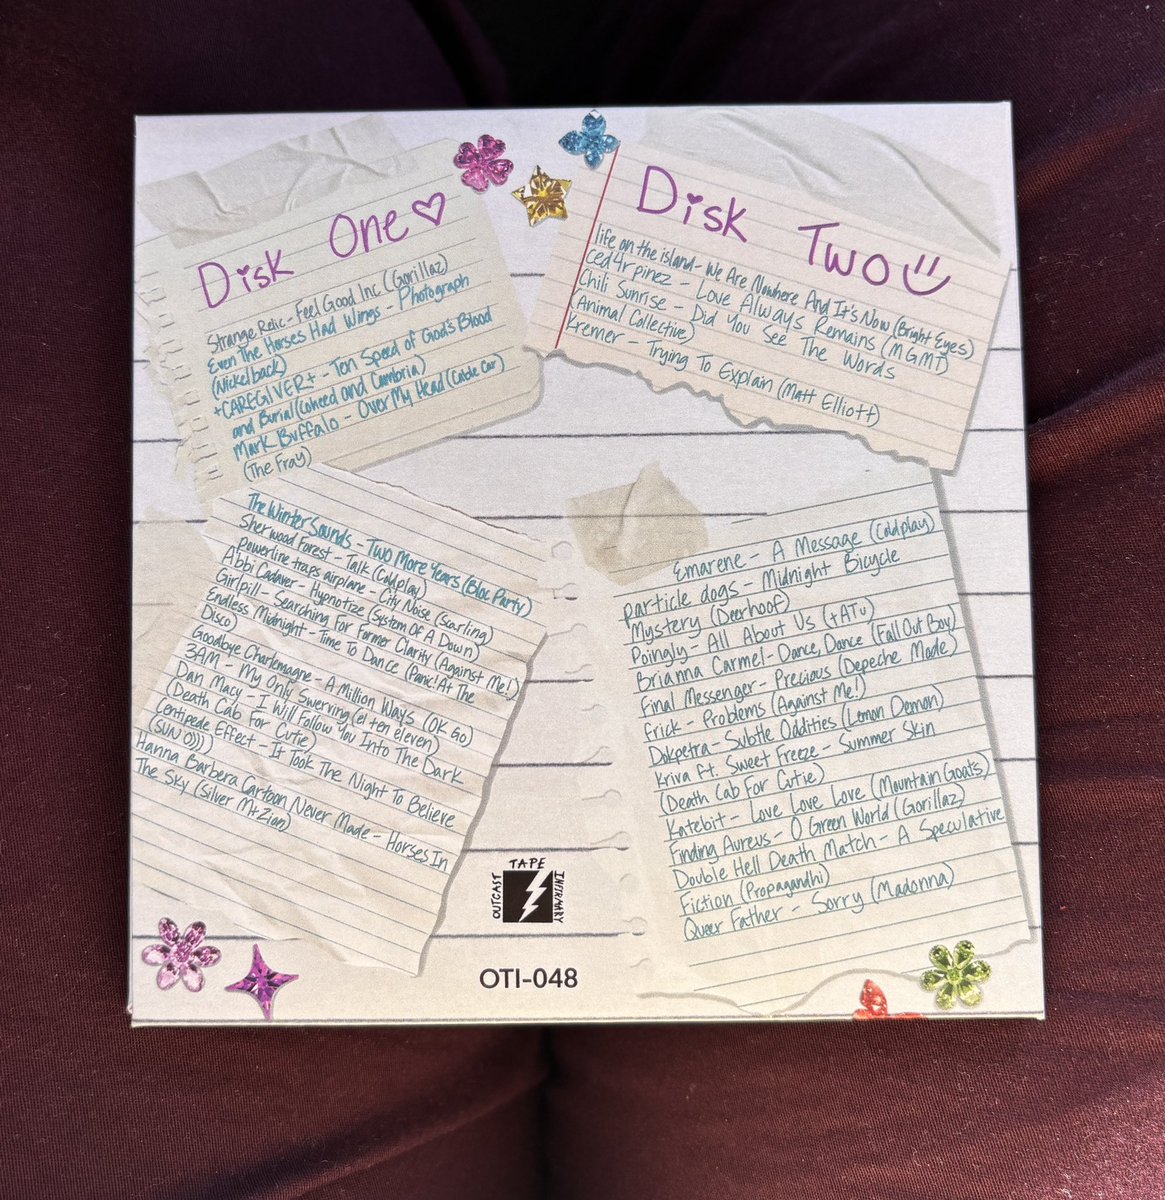 Disk One
Strange Relic - Feel Good Inc (Gorillaz)
Even The Horses Had Wings - Photograph
(Nickelback)
+CAREGIVER+ - Ton Speed of God's Blood
and Burial (Coheed and Cambria)
Mark Buffalo - Over My Head (Cable Car)
(The Fray)
The Winter Sounds - Two More Years (Bloc Party)
Sherwood Forest - Talk (Coldplay)
Powerline traps airplane - City Noise (Scarling)
Abbi Cadaver - Hypnotize (System Of A Down)
Girlpill - Searching For Former Clarity (Against Me!)
Endless Midnight - Time To Dance (Panic! At The
Disco)
Goodbye Charlemagne - A Million Ways (OK Go)
3AM - My Only Swerving (el ten eleven)
Dan Macy - I Will Follow You Into The Dark
(Death Cab For Cutie)
Centipede Effect - It Took The Night To Believe
(SUN O)))
Hanna Barbera Cartoon Never Made - Horses In
The Sky (Silver Mt Zion)
Disk Two
life on the island - We Are Nowhere And It's Now (Bright Eyes)
ced4rpinez - Love Always Remains (MGMT)
Chili Sunrise - Did You See The Words
(Animal Collective)
Kremer - Trying To Explain (Matt Elliott)
Emarene - A Message (Coldplay)
particle dogs - Midnight Bicycle
Mystery (Deerhoof)
Poingly - All About Us (+ATu)
Brianna Carmel - Dance, Dance (Fall Out Boy)
Final Messenger - Precious (Depeche Mode)
Frick - Problems (Against Me!)
Dokpetra - Subtle Oddities (Lemon Demon)
Kriva Ft. Sweet Freeze - Summer Skin
(Death Cab For Cutie)
Katebit - Love Love Love (Mountain Goats)
Finding Aureus - O Green World (Gorillaz)
Double Hell Death Match - A Speculative
Fiction (Propagandhi)
Queer Father - Sorry (Madonna)
OUTCAST TAPE INFIRMARY
OTI-048